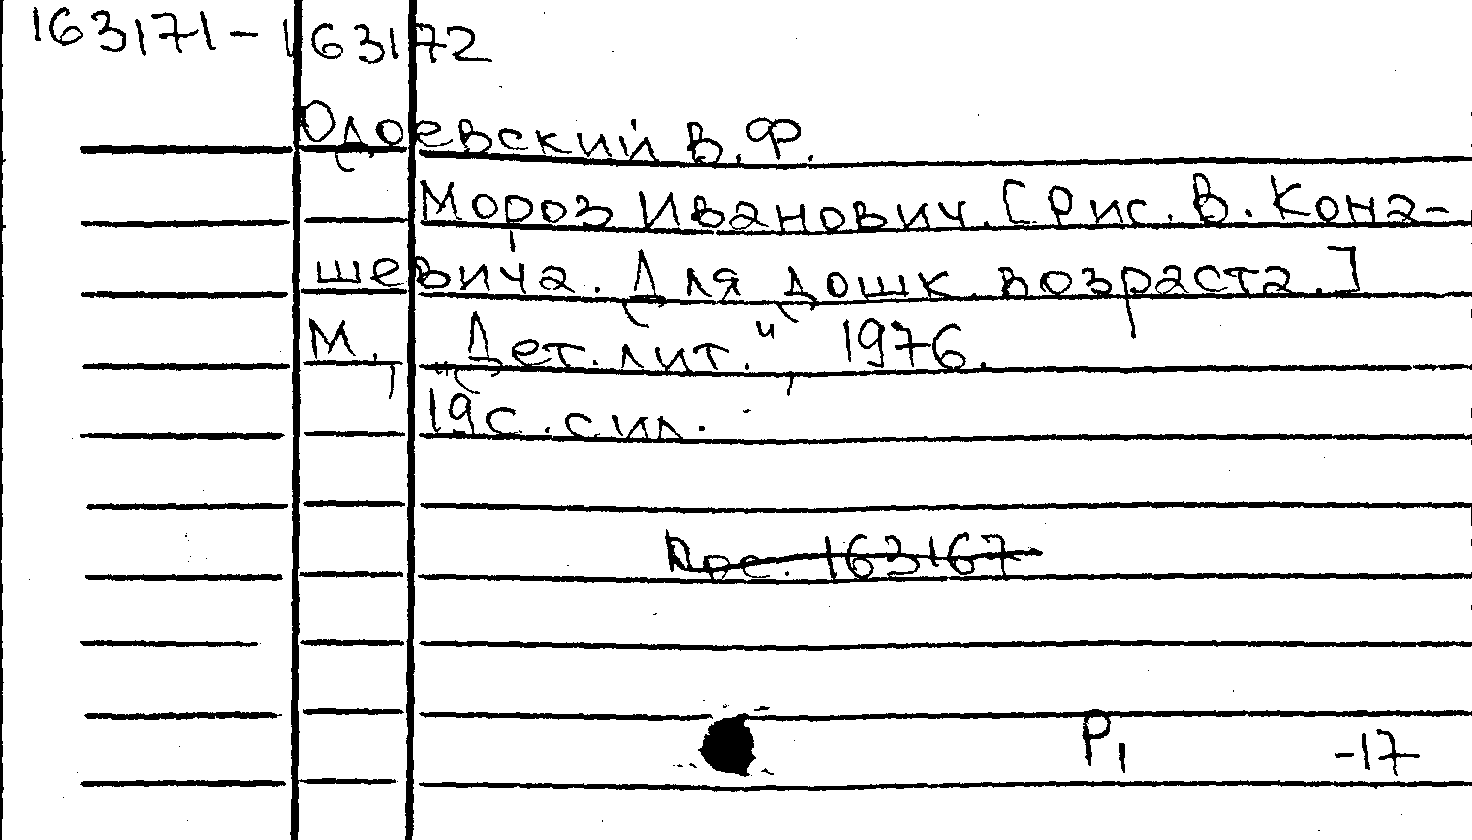 163171-163172
Одоевский В.Ф.
Мороз Иванович. [Рис. В. Кона-
шевича. Для дошк. возраста.]
М., „Дет. лит.", 1976.
19с. с ил.
163167
Р1 -17